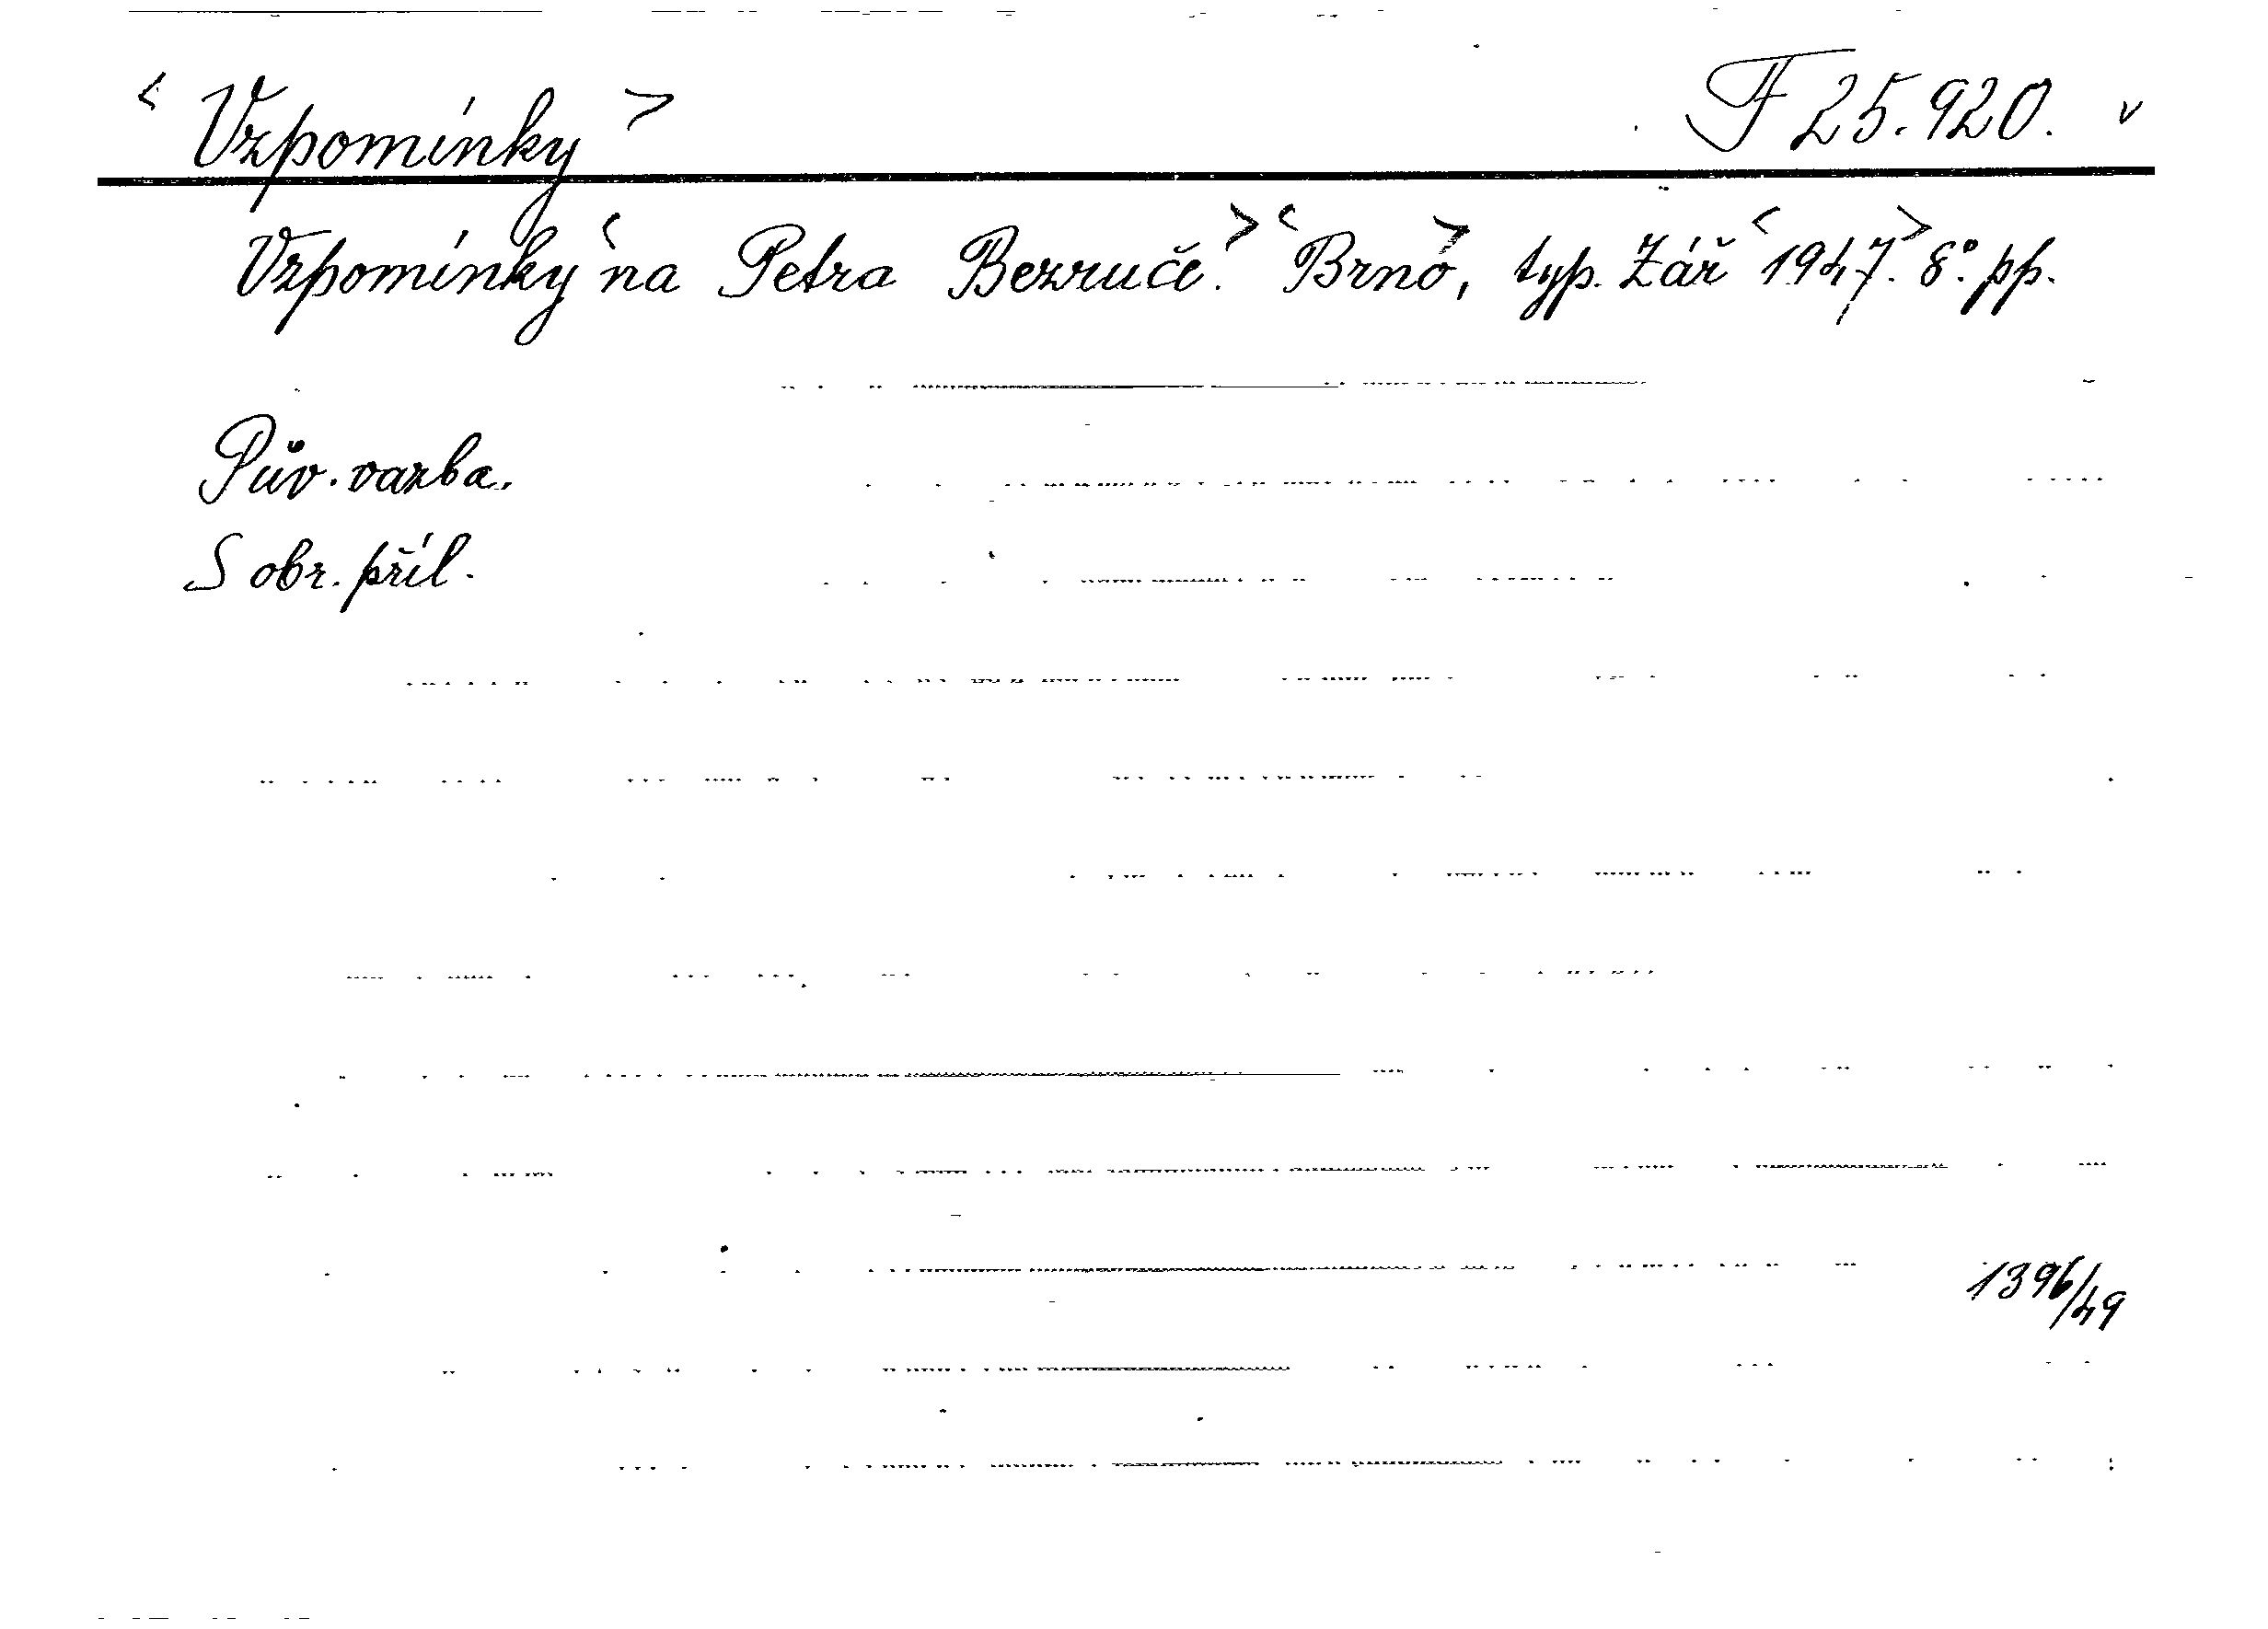 < Vzpomínky > F 25.920. v
Vzpomínky < na Petra Bezruče. > < Brno >, typ. Zář < 1947. > 8°. pp.
Pův. vazba.
S obr. příl.
1396/49